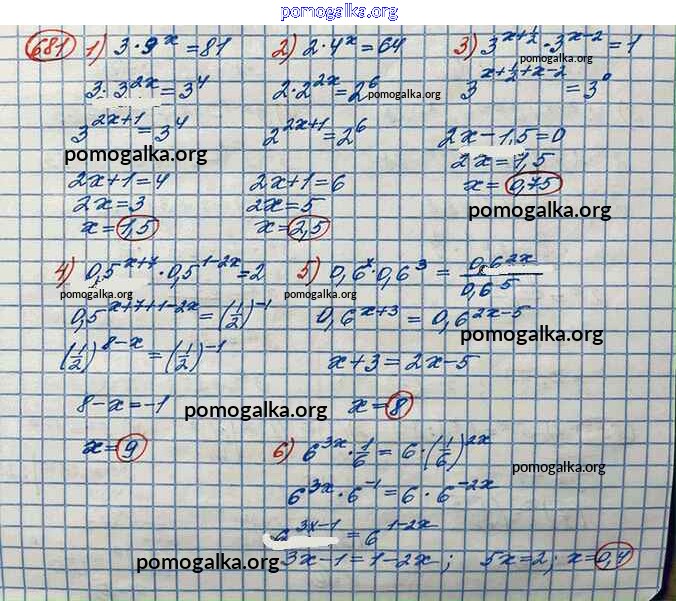 pomogalka.org
681 1) 3·9^x=81 2) 2·4^x=64 3) 3^{x+1/2}·3^{x-2}=1
pomogalka.org
3·3^{2x}=3^4 2·2^{2x}=2^6 3^{x+1/2+x-2}=3^0
pomogalka.org
3^{2x+1}=3^4 2^{2x+1}=2^6 2x-1,5=0
pomogalka.org 2x=1,5
2x+1=4 2x+1=6 x=0,75
2x=3 2x=5 pomogalka.org
x=1,5 x=2,5
4) 0,5^{x+7}·0,5^{1-2x}=2 5) 0,6^x·0,6^3=0,6^{2x}/0,6^5
pomogalka.org pomogalka.org
0,5^{x+7+1-2x}=(1/2)^{-1} 0,6^{x+3}=0,6^{2x-5}
pomogalka.org
(1/2)^{8-x}=(1/2)^{-1} x+3=2x-5
8-x=-1 pomogalka.org x=8
x=9 6) 6^{3x}·1/6=6·(1/6)^{2x}
pomogalka.org
6^{3x}·6^{-1}=6·6^{-2x}
6^{3x-1}=6^{1-2x}
pomogalka.org 3x-1=1-2x; 5x=2; x=0,4